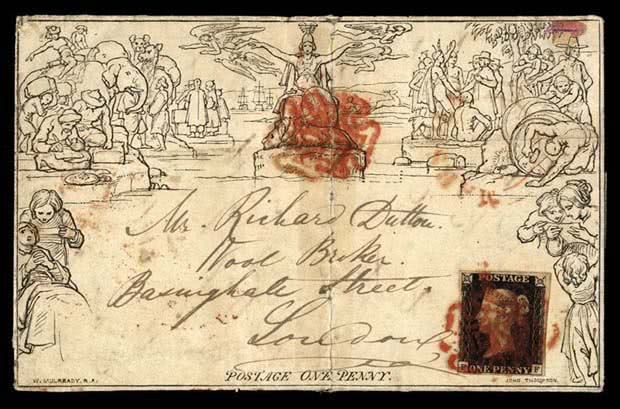 Mr. Richard Dutton.
Wool Broker.
Basinghale Street.
London
POSTAGE
ONE PENNY
P F
W. MULREADY, R.A.
POSTAGE ONE PENNY.
JOHN THOMPSON.